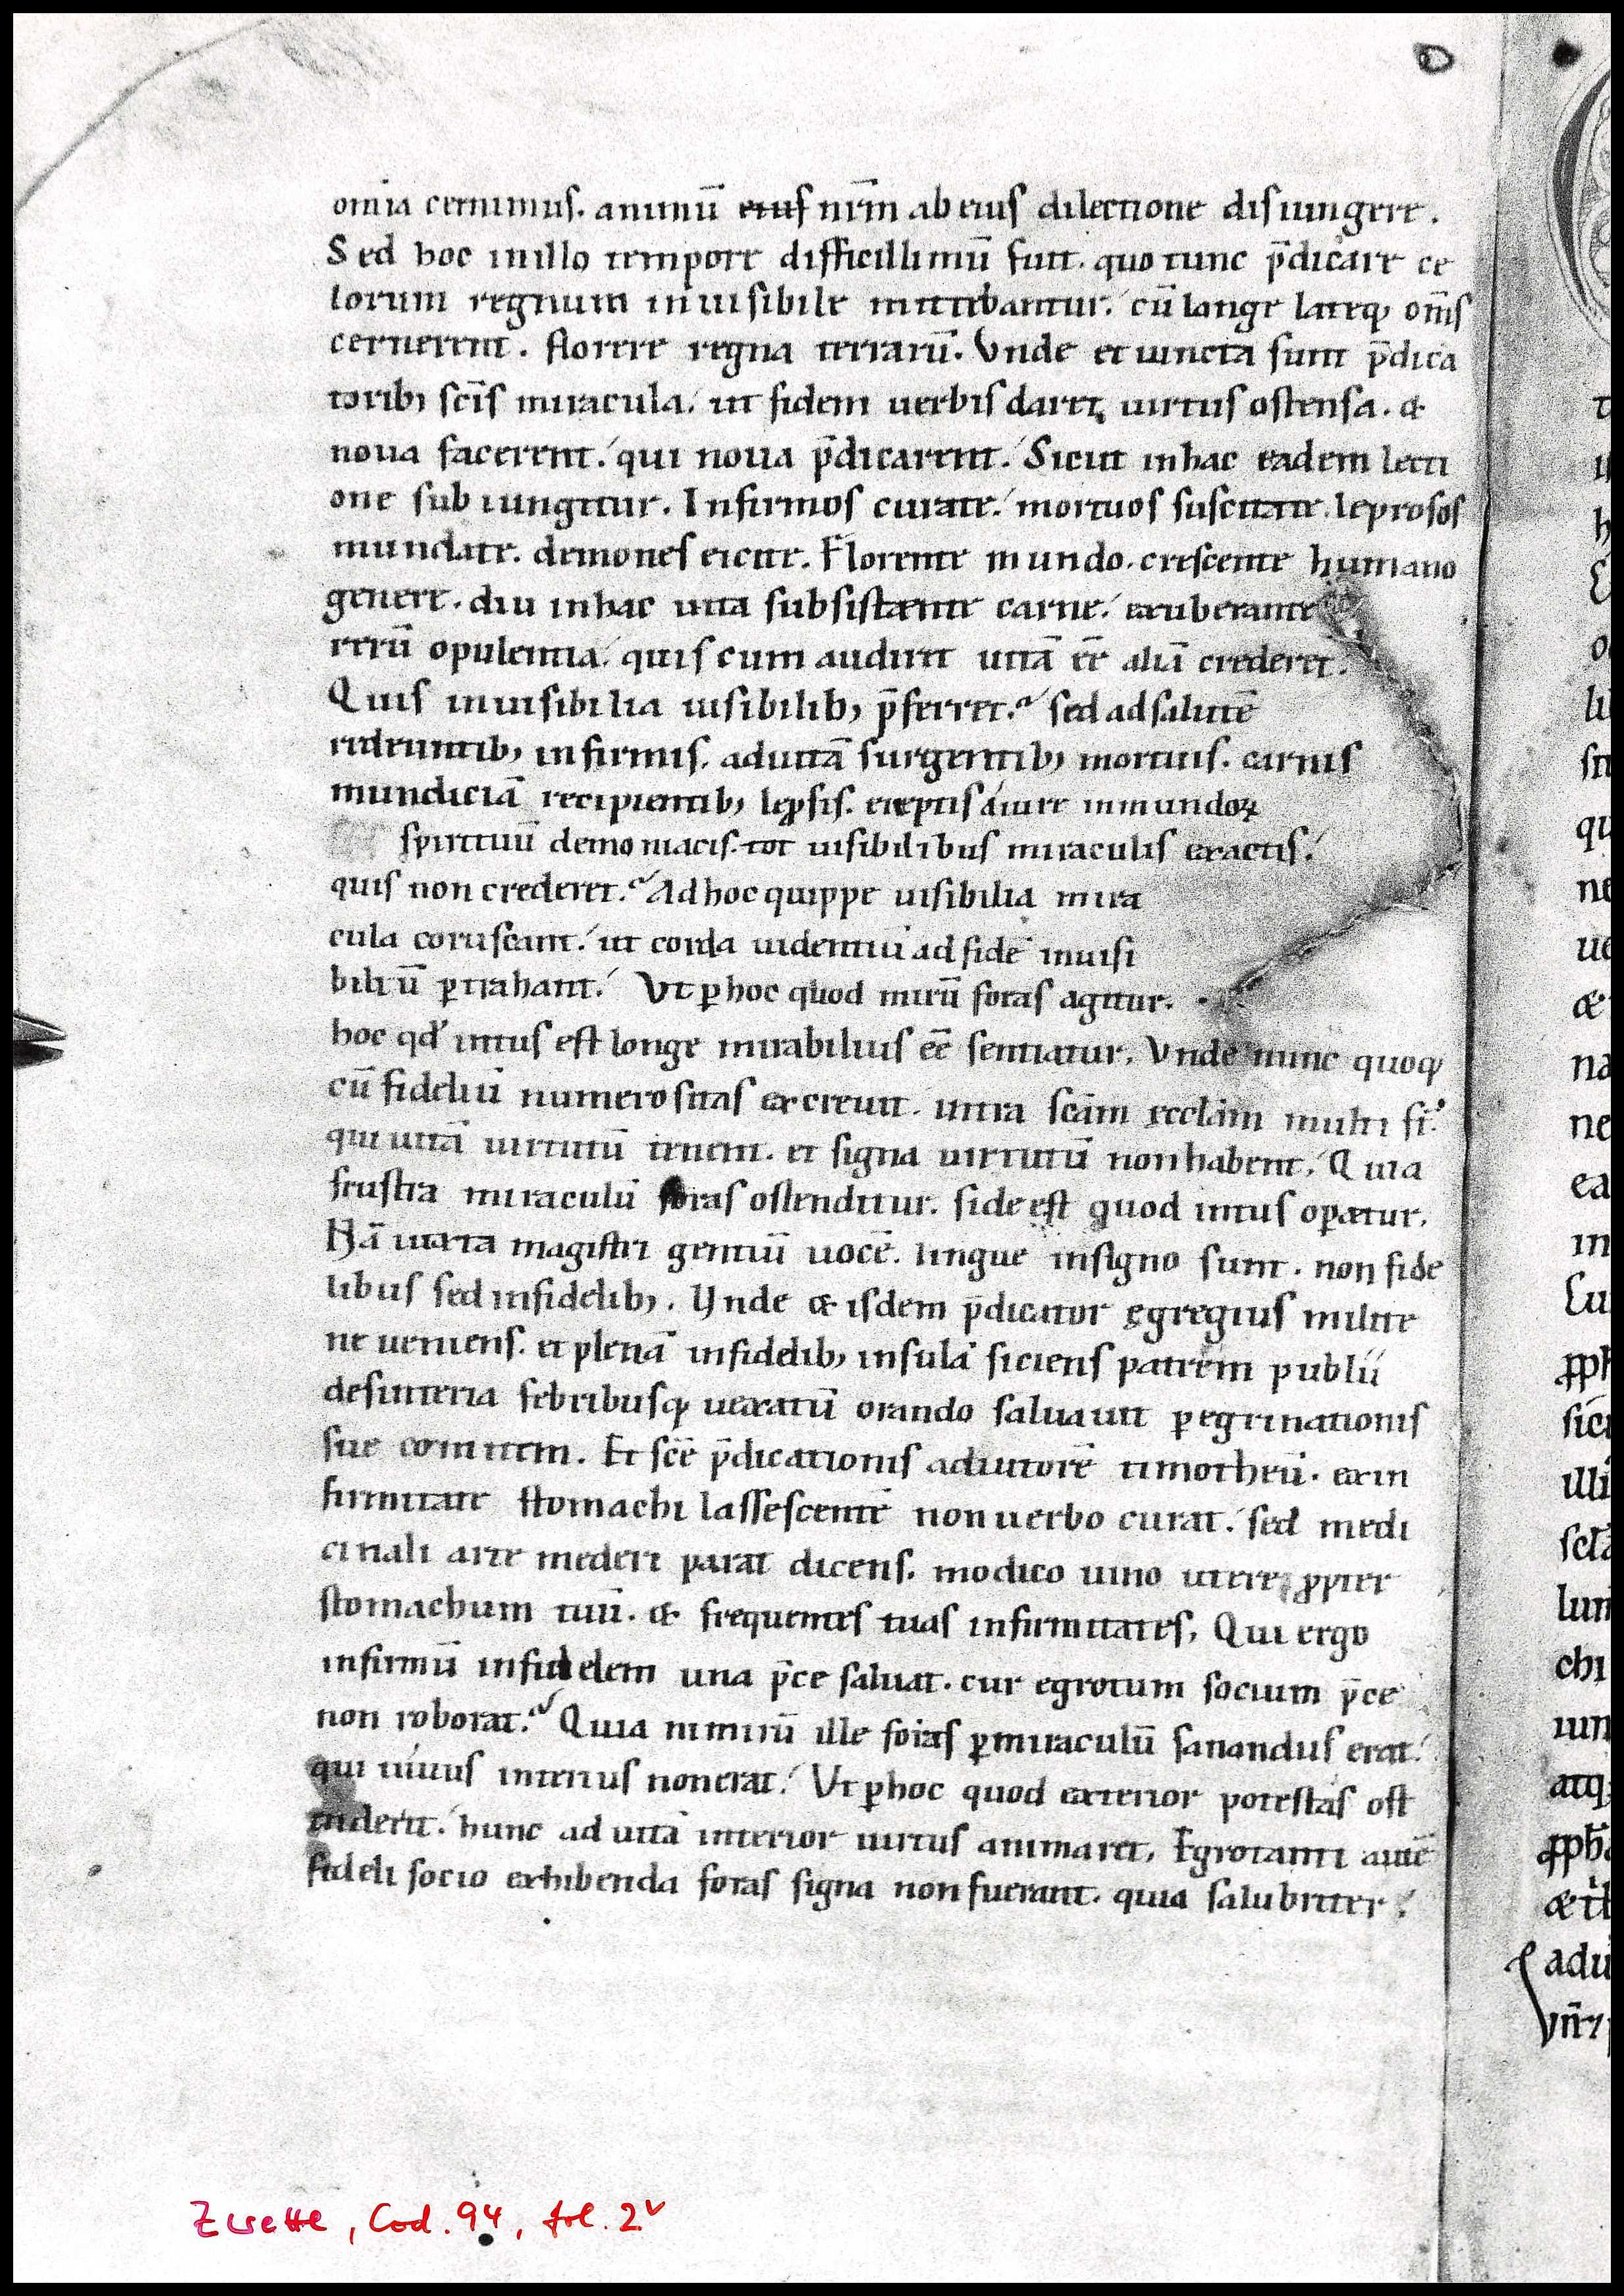 om̄ia cernimus. animū eius nr̄m ab eius dilectione disiungere.
Sed hoc in illo tempore difficillimū fuit. quo tunc p̄dicare ce
lorum regnum inuisibile mittebantur. cū longe lateq; om̄s
cernerent. florere regna terrarū. Vnde et iuncta sunt p̄dica
torib; sc̄is miracula. ut fidem uerbis daret uirtus ostensa. &
noua facerent. qui noua p̄dicarent. Sicut in hac eadem lecti
one subiungitur. Infirmos curate. mortuos suscitate. leprosos
mundate. demones eicite. Florente mundo. crescente humano
genere. diu in hac uita subsistente carne. exuberante
rerū opulentia. quis cum audiret uitā eē aliā crederet.
Quis inuisibilia uisibilib; p̄ferret. sed ad salutē
redeuntib; infirmis. ad uitā surgentib; mortuis. carnis
mundiciā recipientib; lep̱sis. ereptis á iure inmundoꝝ
spirituū demoniacis. tot uisibilibus miraculis exactis.
quis non crederet. Ad hoc quippe uisibilia mira
cula coruscant. ut corda uidentiū ad fidē inuisi
biliū ꝑtrahant. Vt ꝑ hoc quod mirū foras agitur.
hoc qd̓ intus est longe mirabilius eē sentiatur. Vnde nunc quoq;
cū fideliū numerositas excreuit. intra sc̄am ęccl̄am multi st̄.
qui uitā uirtutū tenent. et signa uirtutū non habent. Quia
frustra miraculū foras ostenditur. si de est quod intus opꝑetur.
Nā iuxta magistri gentiū uocē. lingue in signo sunt. non fide
libus sed infidelib;. Vnde & isdem p̄dicator ęgregius milite
ne ueniens. et plenā infidelib; insulā siciens patrem publii
desinteria febribusq; uexatū orando saluauit ꝑegrinationis
sue comitem. Et sc̄e p̄dicationis adiutorē timotheū. ex in
firmitate stomachi lassescentē non uerbo curat. sed medi
cinali arte mederi parat dicens. modico uino utere ꝓpter
stomachum tuū. & frequentes tuas infirmitates. Qui ergo
infirmū infidelem una p̄ce saluat. cur egrotum socium p̄ce
non roborat. Quia nimirū ille foras ꝑ miraculū sanandus erat.
qui uiuus interius non erat. Vt ꝑ hoc quod exterior potestas ost
enderet. hunc ad uitā interior uirtus animaret. Egrotanti autē
fideli socio exhibenda foras signa non fuerant. quia salubriter.
Zwettl, Cod. 94, fol. 2v